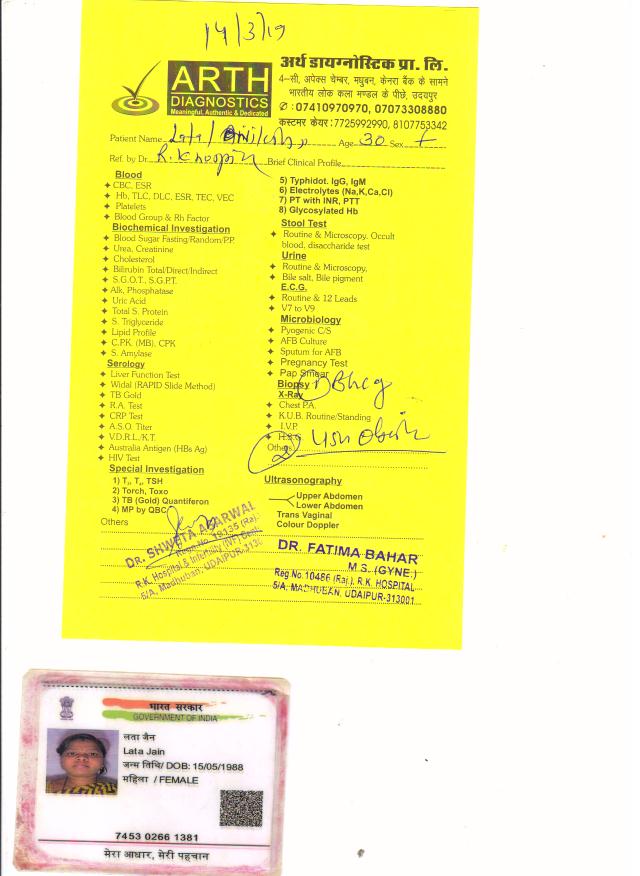 14/3/19
ARTH
DIAGNOSTICS
Meaningful, Authentic & Dedicated
अर्थ डायग्नोस्टिक प्रा. लि.
4-सी, अपेक्स चेम्बर, मधुबन, केनरा बैंक के सामने
भारतीय लोक कला मण्डल के पीछे, उदयपुर
✆ : 07410970970, 07073308880
कस्टमर केयर : 7725992990, 8107753342
Patient Name Lata / Age 30 Sex F
Ref. by Dr. R.K. Hospital Brief Clinical Profile
Blood
✦ CBC, ESR
✦ Hb, TLC, DLC, ESR, TEC, VEC
✦ Platelets
✦ Blood Group & Rh Factor
Biochemical Investigation
✦ Blood Sugar Fasting/Random/P.P.
✦ Urea, Creatinine
✦ Cholesterol
✦ Bilirubin Total/Direct/Indirect
✦ S.G.O.T., S.G.P.T.
✦ Alk, Phosphatase
✦ Uric Acid
✦ Total S. Protein
✦ S. Triglyceride
✦ Lipid Profile
✦ C.P.K. (MB), CPK
✦ S. Amylase
Serology
✦ Liver Function Test
✦ Widal (RAPID Slide Method)
✦ TB Gold
✦ R.A. Test
✦ CRP Test
✦ A.S.O. Titer
✦ V.D.R.L./K.T.
✦ Australia Antigen (HBs Ag)
✦ HIV Test
Special Investigation
1) T₃, T₄, TSH
2) Torch, Toxo
3) TB (Gold) Quantiferon
4) MP by QBC
Others
5) Typhidot. IgG, IgM
6) Electrolytes (Na,K,Ca,Cl)
7) PT with INR, PTT
8) Glycosylated Hb
Stool Test
✦ Routine & Microscopy. Occult
blood, disaccharide test
Urine
✦ Routine & Microscopy,
✦ Bile salt, Bile pigment
E.C.G.
✦ Routine & 12 Leads
✦ V7 to V9
Microbiology
✦ Pyogenic C/S
✦ AFB Culture
✦ Sputum for AFB
✦ Pregnancy Test
✦ Pap Smear
Biopsy
1) BhCg
X-Ray
✦ Chest P.A.
✦ K.U.B. Routine/Standing
✦ I.V.P.
✦ H.S.G.
Others
2) USG Obs
Ultrasonography
Upper Abdomen
Lower Abdomen
Trans Vaginal
Colour Doppler
DR. SHWETA AGARWAL
Rego.No. 19135 (Raj.)
R.K. Hospital & Infertility (IVF) Cent.
5/A, Madhuban, UDAIPUR-313
DR. FATIMA BAHAR
M.S. (GYNE.)
Reg No.10486 (Raj.), R.K. HOSPITAL
5/A, MADHUBAN, UDAIPUR-313001
भारत सरकार
GOVERNMENT OF INDIA
लता जैन
Lata Jain
जन्म तिथि/ DOB: 15/05/1988
महिला / FEMALE
7453 0266 1381
मेरा आधार, मेरी पहचान